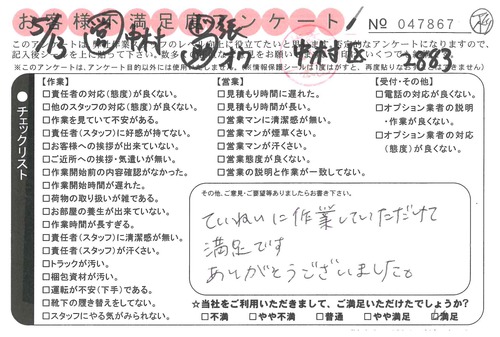 お客様不満足度アンケート!
№ 047867
5/3 中村
中村区
2883
チェックリスト
【作業】
□責任者の対応(態度)が良くない。
□他のスタッフの対応(態度)が良くない。
□作業を見ていて不安がある。
□責任者(スタッフ)に好感が持てない。
□お客様への挨拶が出来ていない。
□ご近所への挨拶・気遣いが無い。
□作業開始前の内容確認がなかった。
□作業開始時間が遅れた。
□荷物の取り扱いが雑である。
□お部屋の養生が出来ていない。
□作業時間が長すぎる。
□責任者(スタッフ)に清潔感が無い。
□責任者(スタッフ)が汗くさい。
□トラックが汚い。
□梱包資材が汚い。
□運転が不安(下手)である。
□靴下の履き替えをしてない。
□スタッフにやる気がみられない。
【営業】
□見積もり時間に遅れた。
□見積もり時間が長い。
□営業マンに清潔感が無い。
□営業マンが煙草くさい。
□営業マンが汗くさい。
□営業態度が良くない。
□営業の説明と作業が一致してない。
【受付・その他】
□電話の対応が良くない。
□オプション業者の説明
・作業が良くない。
□オプション業者の対応
(態度)が良くない。
その他、ご意見・ご要望等ありましたらお書き下さい。
ていねいに作業していただけて
満足です
ありがとうございました
☆当社をご利用いただきまして、ご満足いただけたでしょうか?
□不満 □やや不満 □普通 □やや満足 ☑満足